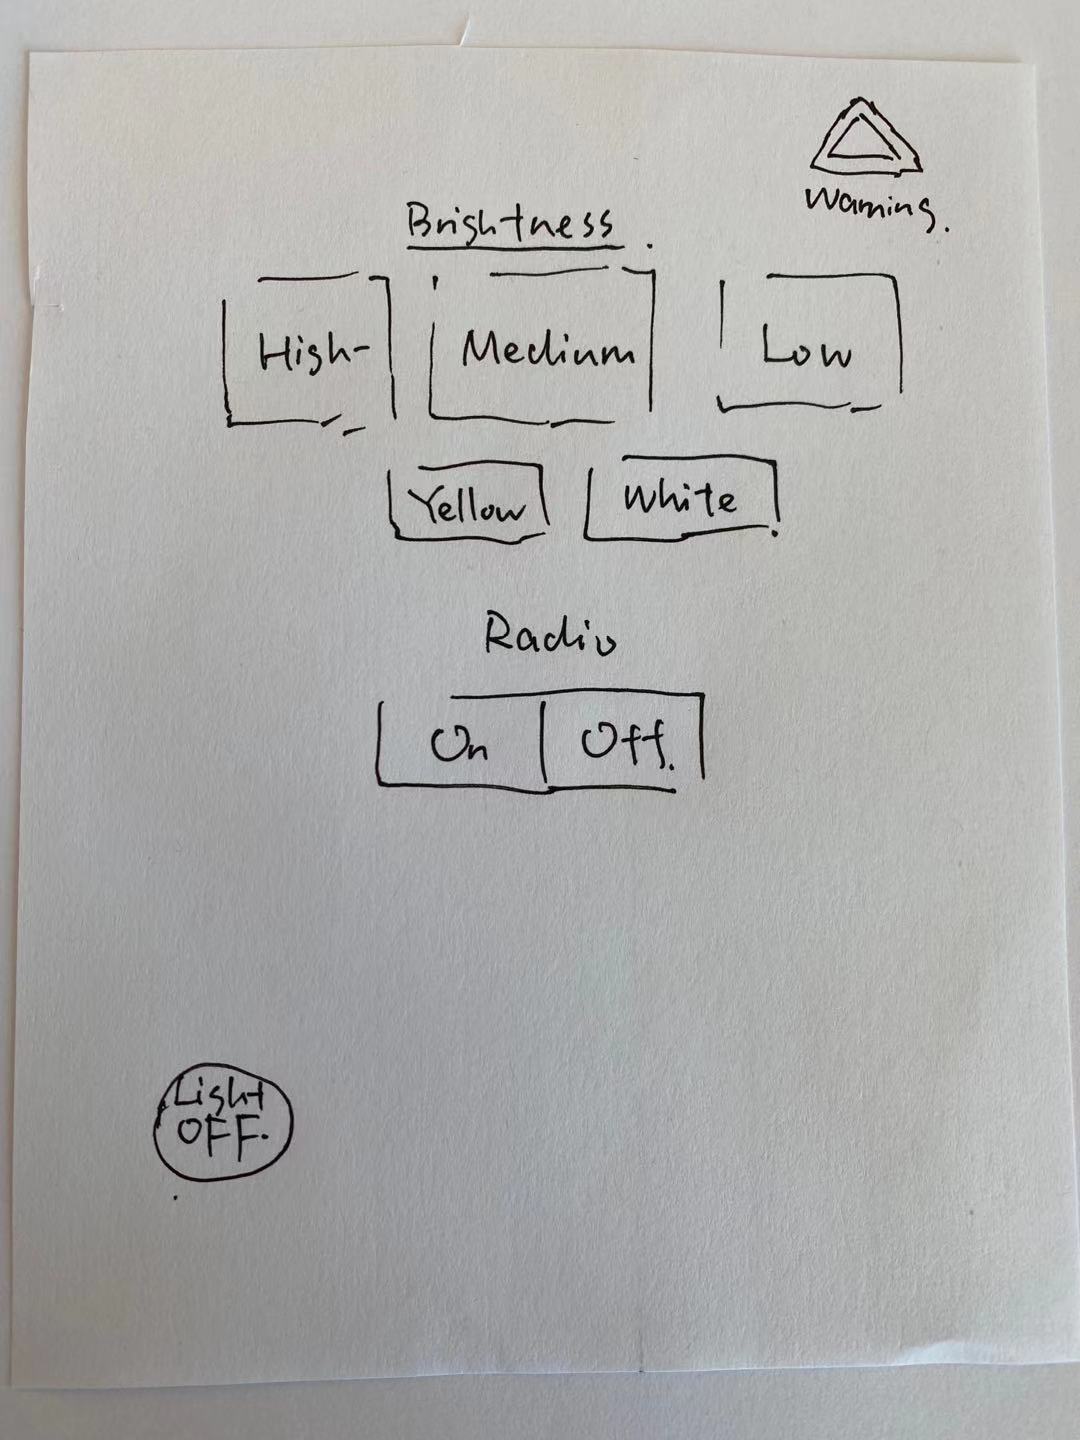 Warning.
Brightness.
High-
Medium
Low
Yellow
White
Radio
On
Off.
Light
OFF.